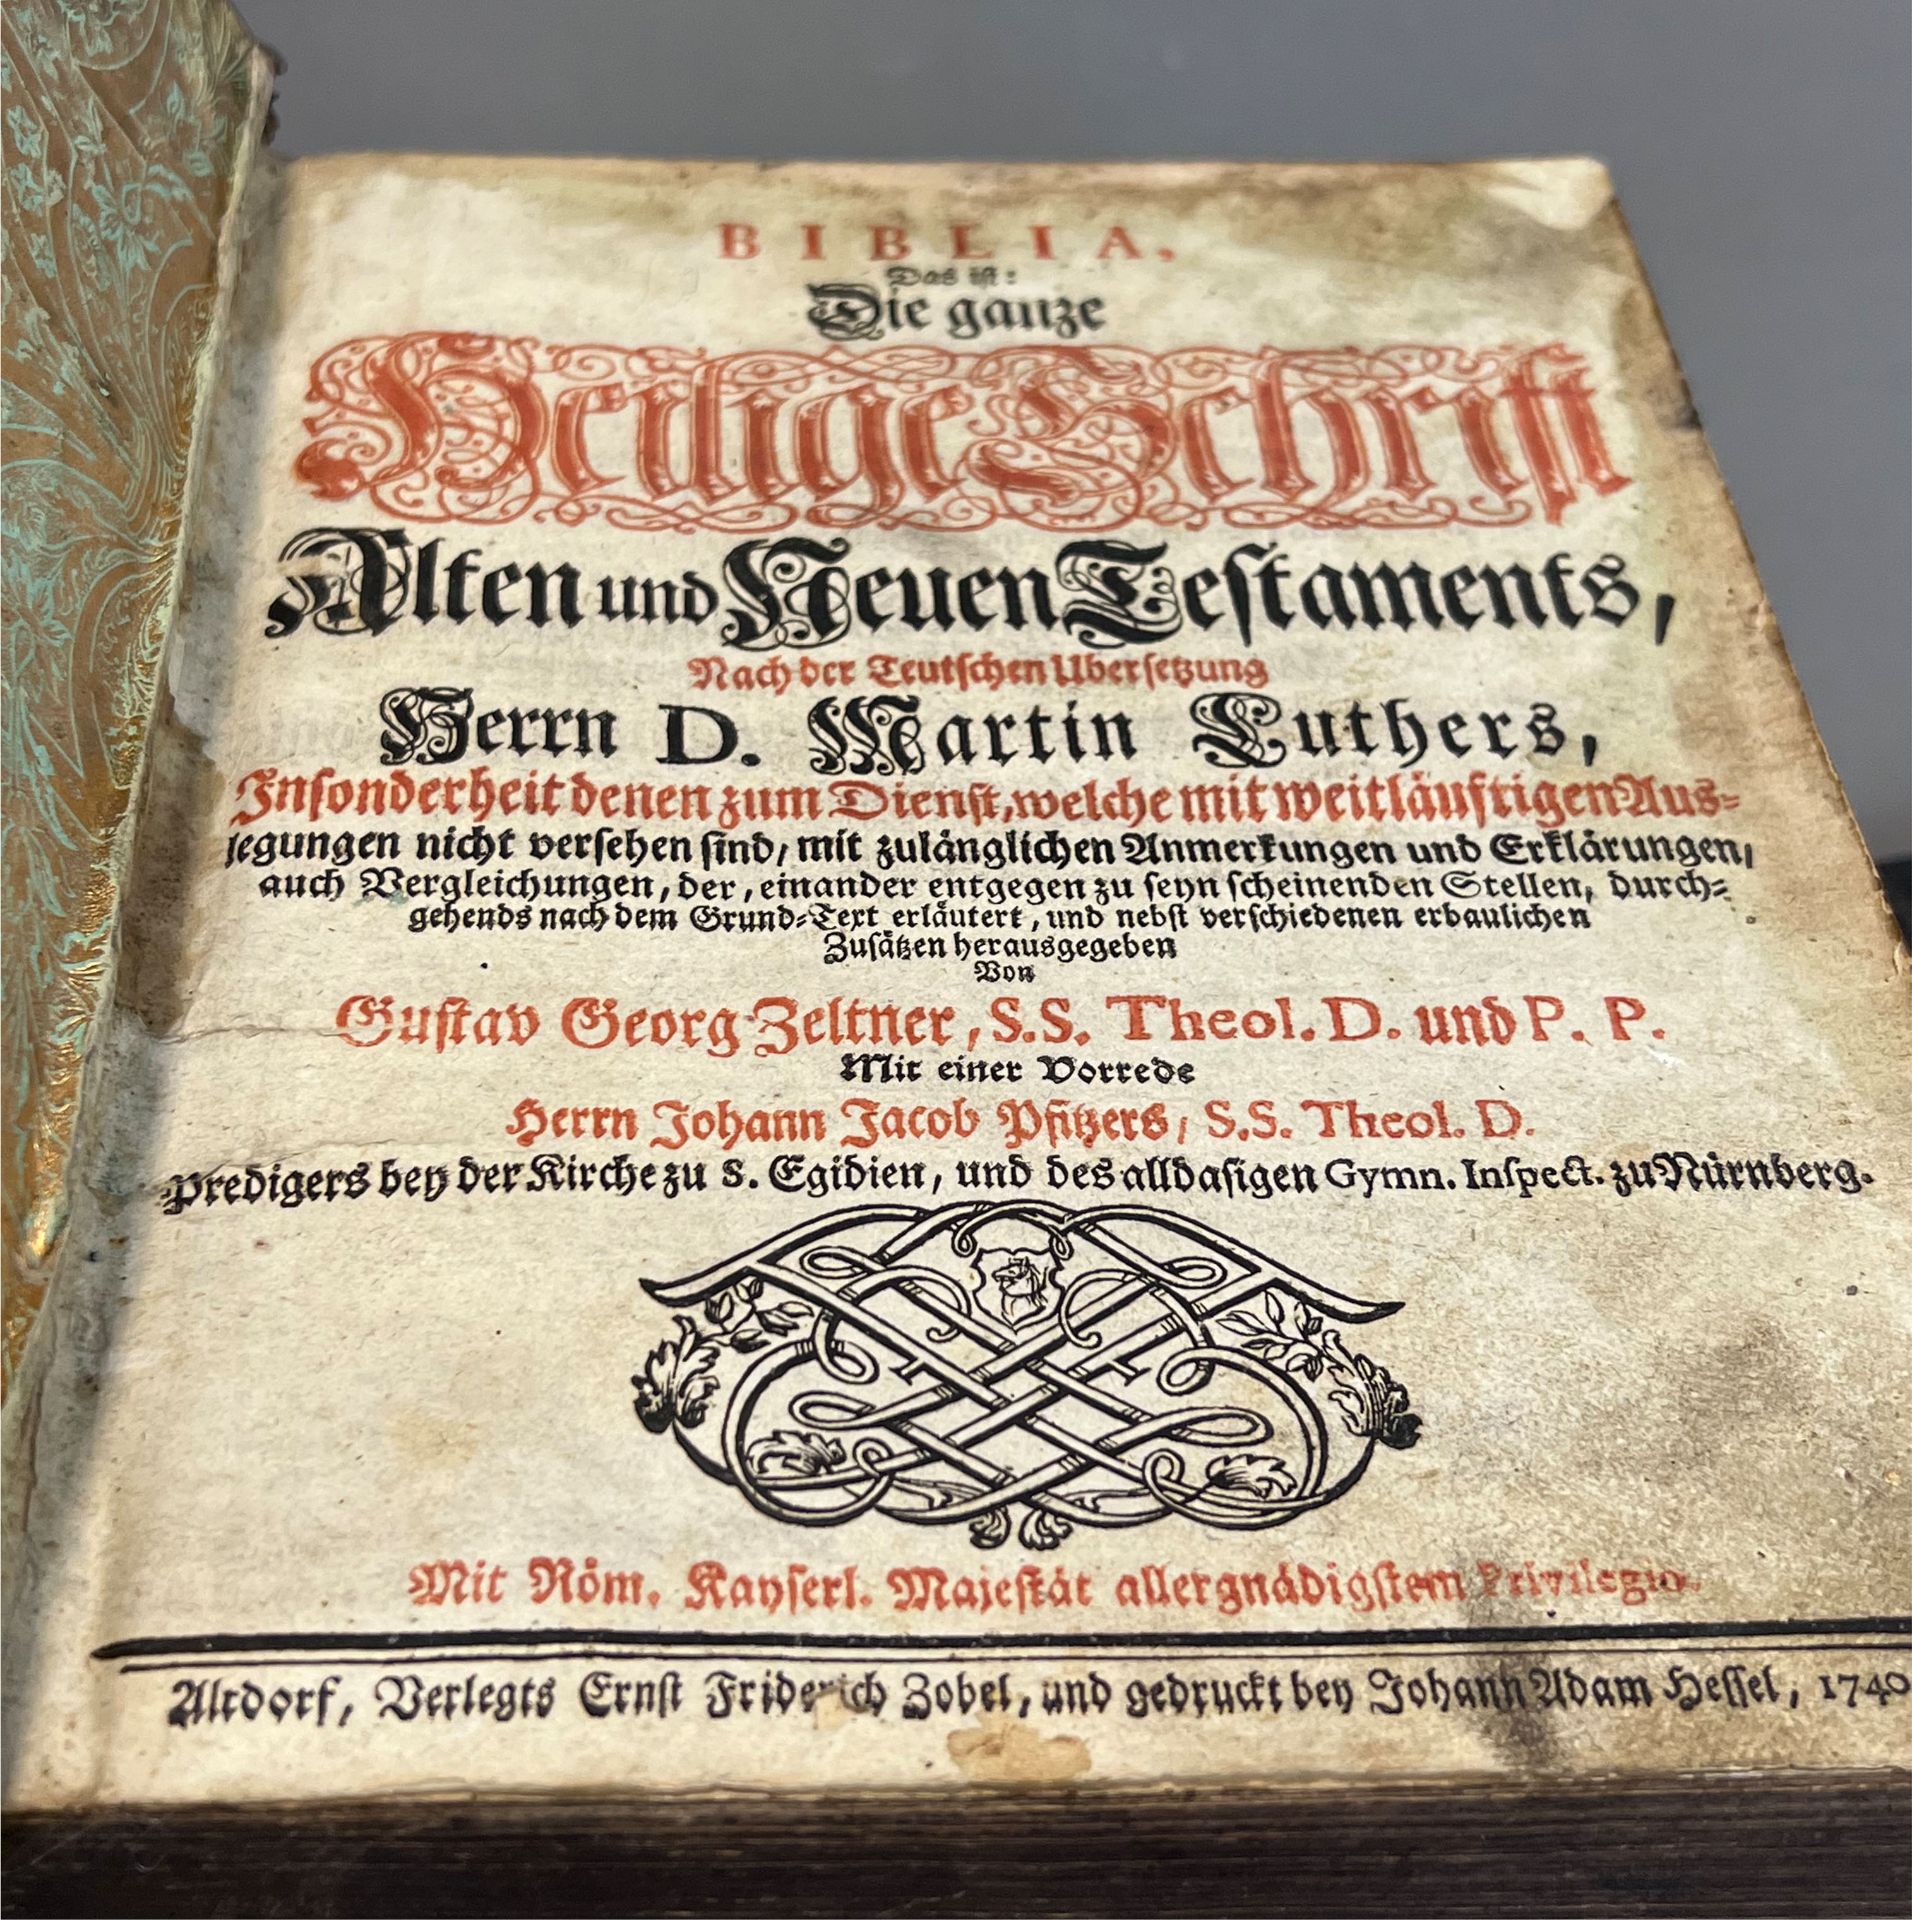 BIBLIA,
Das ist:
Die ganze
Heilige Schrift
Alten und Neuen Testaments,
Nach der Teutschen Ubersetzung
Herrn D. Martin Luthers,
Insonderheit denen zum Dienst, welche mit weitläuftigen Aus-
legungen nicht versehen sind, mit zulänglichen Anmerkungen und Erklärungen,
auch Vergleichungen, der, einander entgegen zu seyn scheinenden Stellen, durch-
gehends nach dem Grund-Text erläutert, und nebst verschiedenen erbaulichen
Zusätzen herausgegeben
Von
Gustav Georg Zeltner, S.S. Theol. D. und P. P.
Mit einer Vorrede
Herrn Johann Jacob Pfitzers, S.S. Theol. D.
Predigers bey der Kirche zu S. Egidien, und des alldasigen Gymn. Inspect. zu Nürnberg.
Mit Röm. Kayserl. Majestät allergnädigstem Privilegio.
Altdorf, Verlegts Ernst Friderich Zobel, und gedruckt bey Johann Adam Hessel, 1740